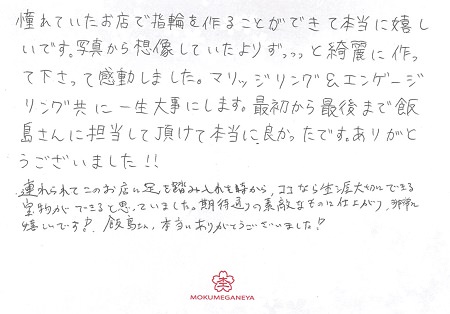 憧れていたお店で指輪を作ることができて本当に嬉し
いです。写真から想像していたよりずっっっと綺麗に作っ
て下さって感動しました。マリッジリング&エンゲージ
リング共に一生大事にします。最初から最後まで飯
島さんに担当して頂けて本当に良かったです。ありがと
うございました!!
連れられてこのお店に足を踏み入れた時から、ココなら生涯大切にできる
宝物ができると思っていました。期待通りの素敵なものに仕上がり、非常に
嬉しいです!飯島さん、本当にありがとうございました!
MOKUMEGANEYA